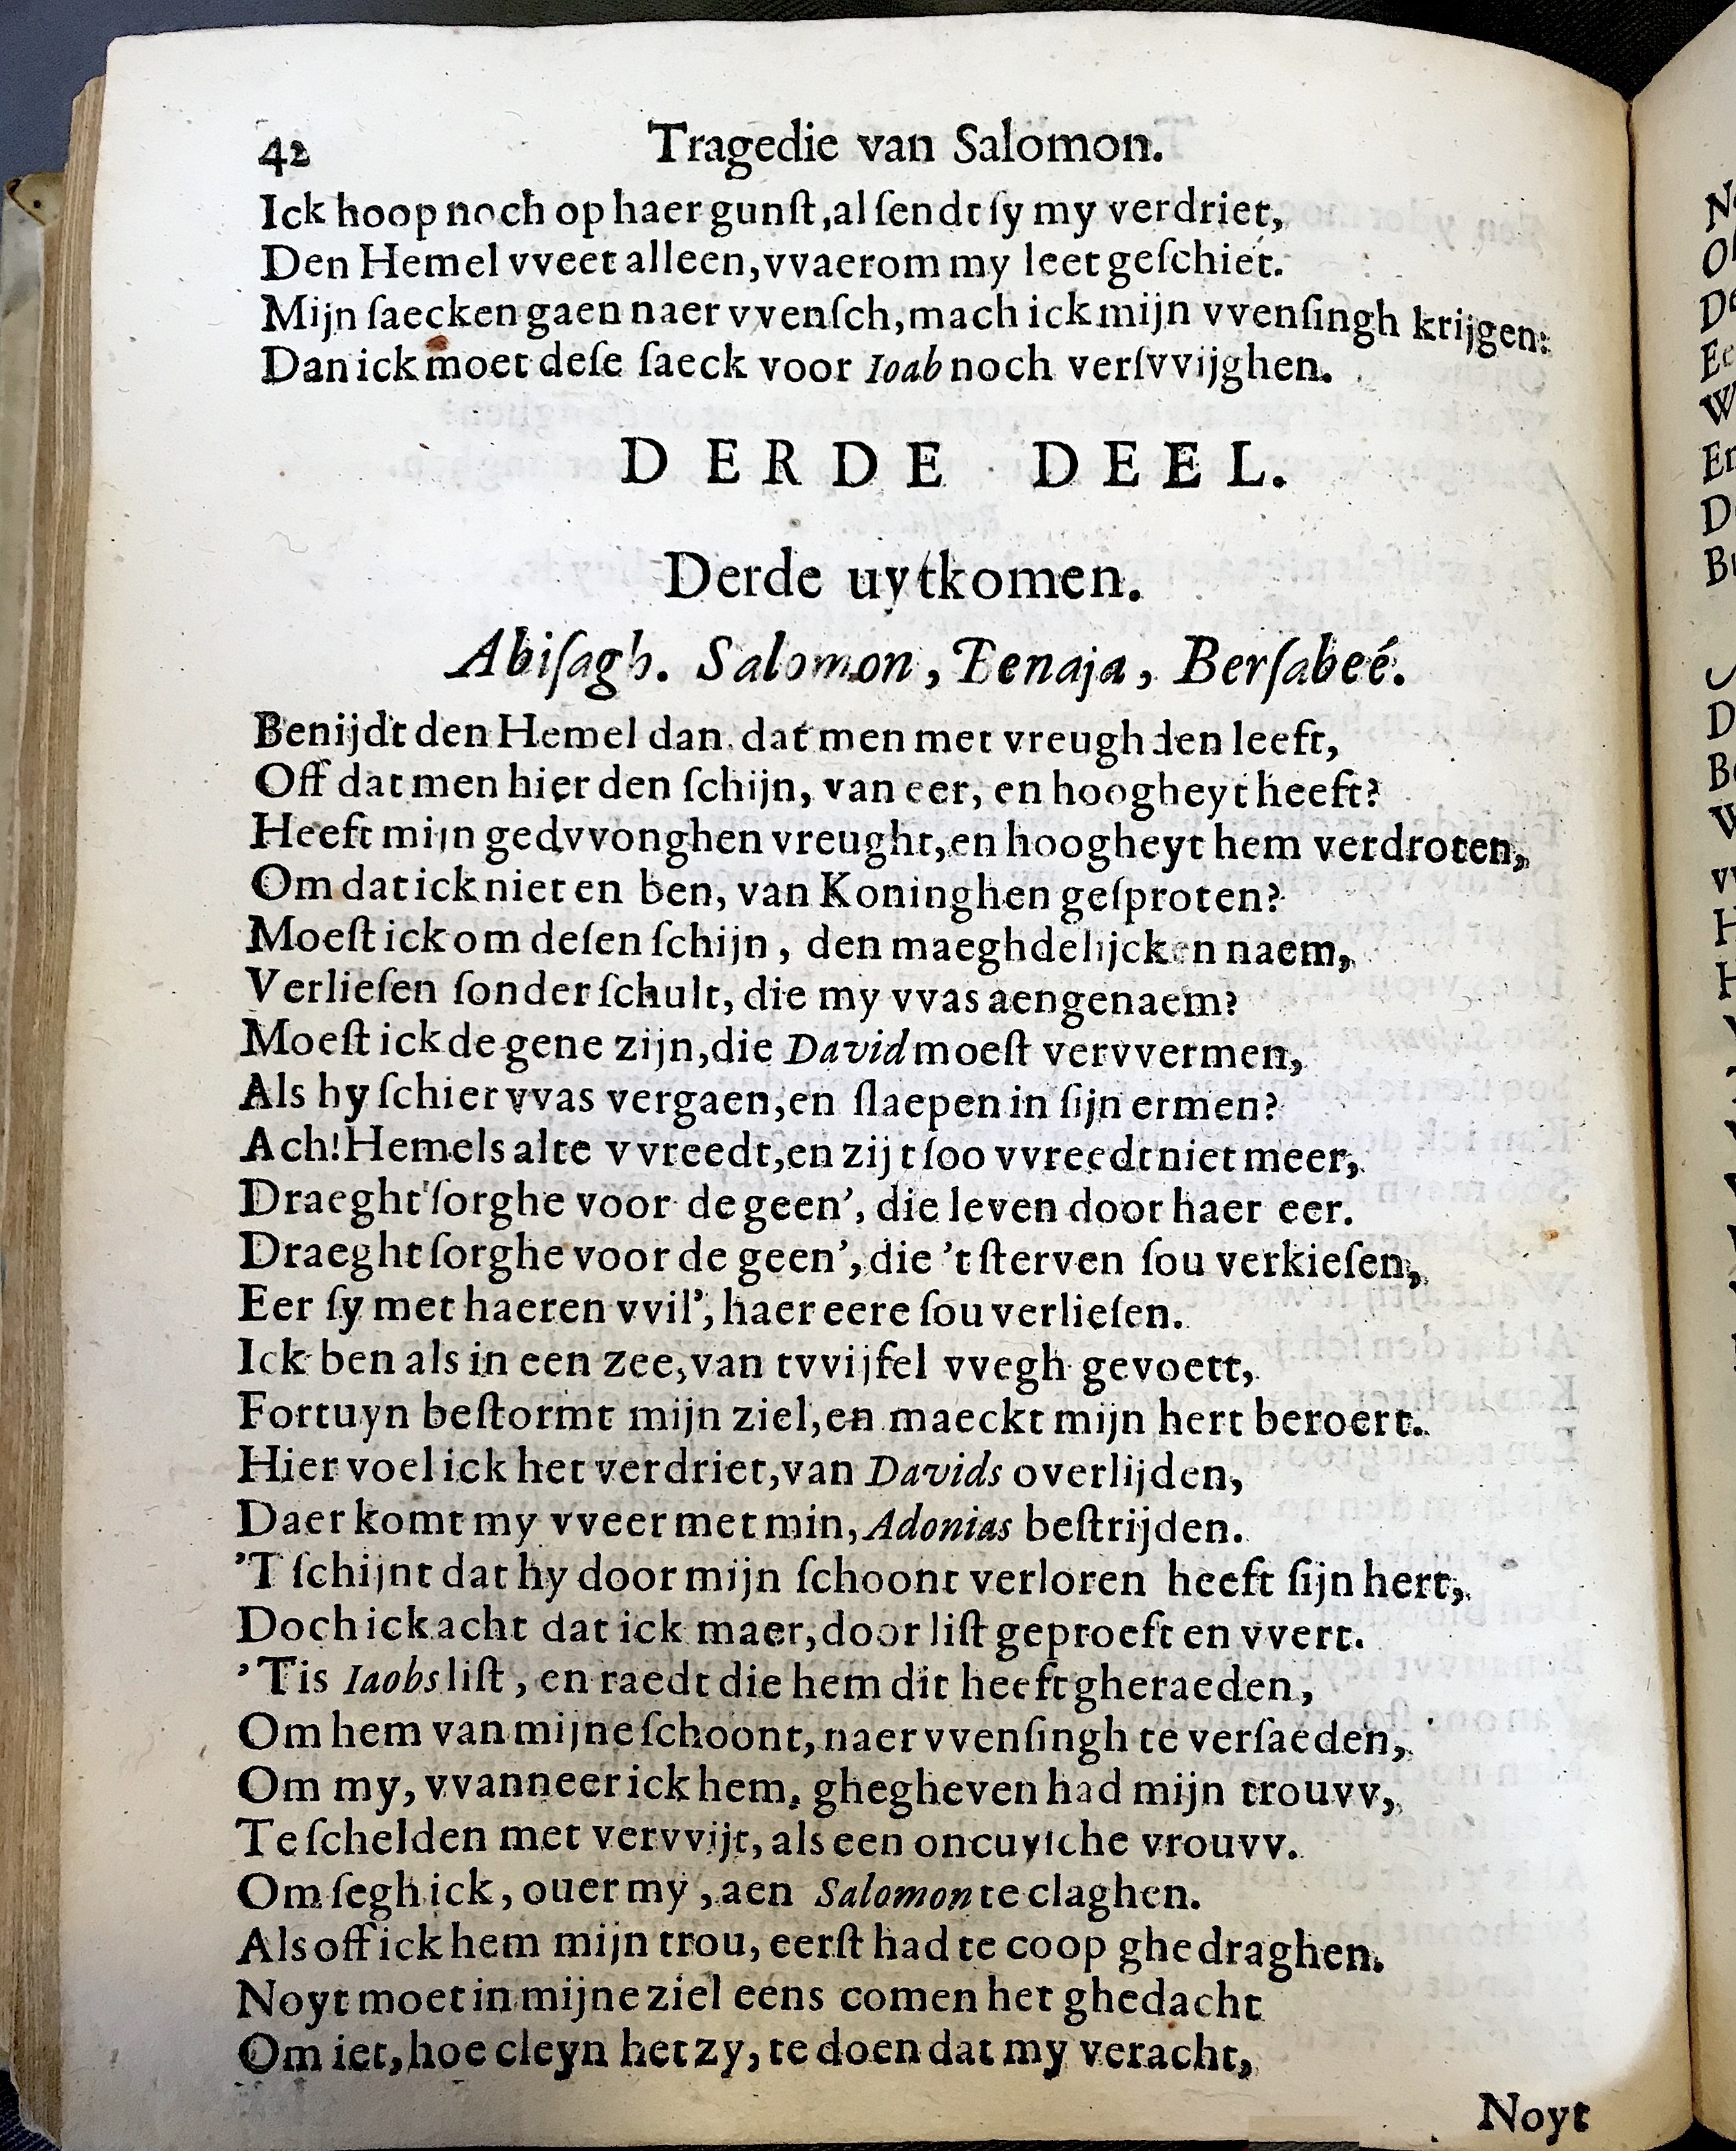 42 Tragedie van Salomon.
Ick hoop noch op haer gunſt, al ſendt ſy my verdriet,
Den Hemel vveet alleen, vvaerom my leet geſchiet.
Mijn ſaecken gaen naer vvenſch, mach ick mijn vvenſingh krijgen:
Dan ick moet deſe ſaeck voor Ioab noch verſvvijghen.
DERDE DEEL.
Derde uytkomen.
Abiſagh. Salomon, Benaja, Berſabeé.
Benijdt den Hemel dan. dat men met vreughden leeft,
Off dat men hier den ſchijn, van eer, en hoogheyt heeft?
Heeft mijn gedvvonghen vreught, en hoogheyt hem verdroten,
Om dat ick niet en ben, van Koninghen geſproten?
Moeſt ick om deſen ſchijn, den maeghdelijcken naem,
Verlieſen ſonder ſchult, die my vvas aengenaem?
Moeſt ick de gene zijn, die David moeſt vervvermen,
Als hy ſchier vvas vergaen, en ſlaepen in ſijn ermen?
Ach! Hemels alte vvreedt, en zijt ſoo vvreedt niet meer,
Draeght ſorghe voor de geen', die leven door haer eer.
Draeght ſorghe voor de geen', die 't ſterven ſou verkieſen,
Eer ſy met haeren vvil', haer eere ſou verlieſen.
Ick ben als in een zee, van tvvijfel vvegh gevoett,
Fortuyn beſtormt mijn ziel, en maeckt mijn hert beroert.
Hier voel ick het verdriet, van Davids overlijden,
Daer komt my vveer met min, Adonias beſtrijden.
'T ſchijnt dat hy door mijn ſchoont verloren heeft ſijn hert,
Doch ick acht dat ick maer, door liſt geproeft en vvert.
'Tis Iaobs liſt, en raedt die hem dit heeft gheraeden,
Om hem van mijne ſchoont, naer vvenſingh te verſaeden,
Om my, vvanneer ick hem, ghegheven had mijn trouvv,
Te ſchelden met vervvijt, als een oncuyſche vrouvv.
Om ſegh ick, ouer my, aen Salomon te claghen.
Als off ick hem mijn trou, eerſt had te coop ghedraghen.
Noyt moet in mijne ziel eens comen het ghedacht
Om iet, hoe cleyn het zy, te doen dat my veracht,
Noyt